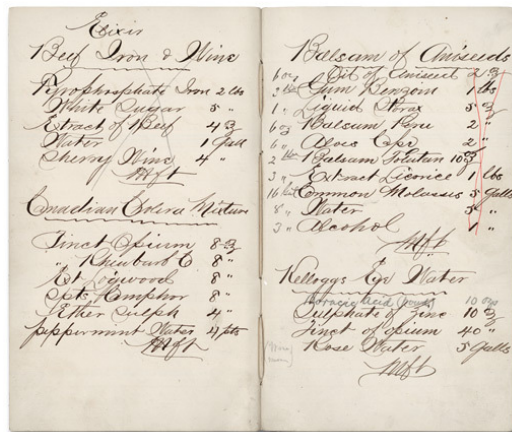 Elixir
Beef Iron & Wine
Pyrophosphate Iron 2 lbs
White Sugar 5 "
Extract of Beef 4 ℥
Water 1 Gall
Sherry Wine 4 "
M ft
Canadian Colera Mixture
Tinct Opium 8 ℥
" Rheubarb C 8 "
Ext Logwood 8 "
Spts Camphor 8 "
Ether Sulph 4 "
Peppermint Water 4 pts
M ft
Balsam of Aniseeds
6 ozs Oil of Aniseed 2 ℥
Gum Benzoin 1 lbs
1 " Liquid Storax 5 ℥
6 ozs Balsam Peru 2 "
6 " Aloes Cpr 2 "
2 Balsam Tolutan 10 ℥
3 " Extract Licorice 1 lbs
16 Common Molasses 5 Galls
8 " Water 5 "
3 " Alcohol 1 "
M ft
Kelloggs Eye Water
Boracic Acid 10 ozs
Sulphate of Zinc 10 ℥
Tinct of opium 40 "
Rose Water 5 Galls
M ft